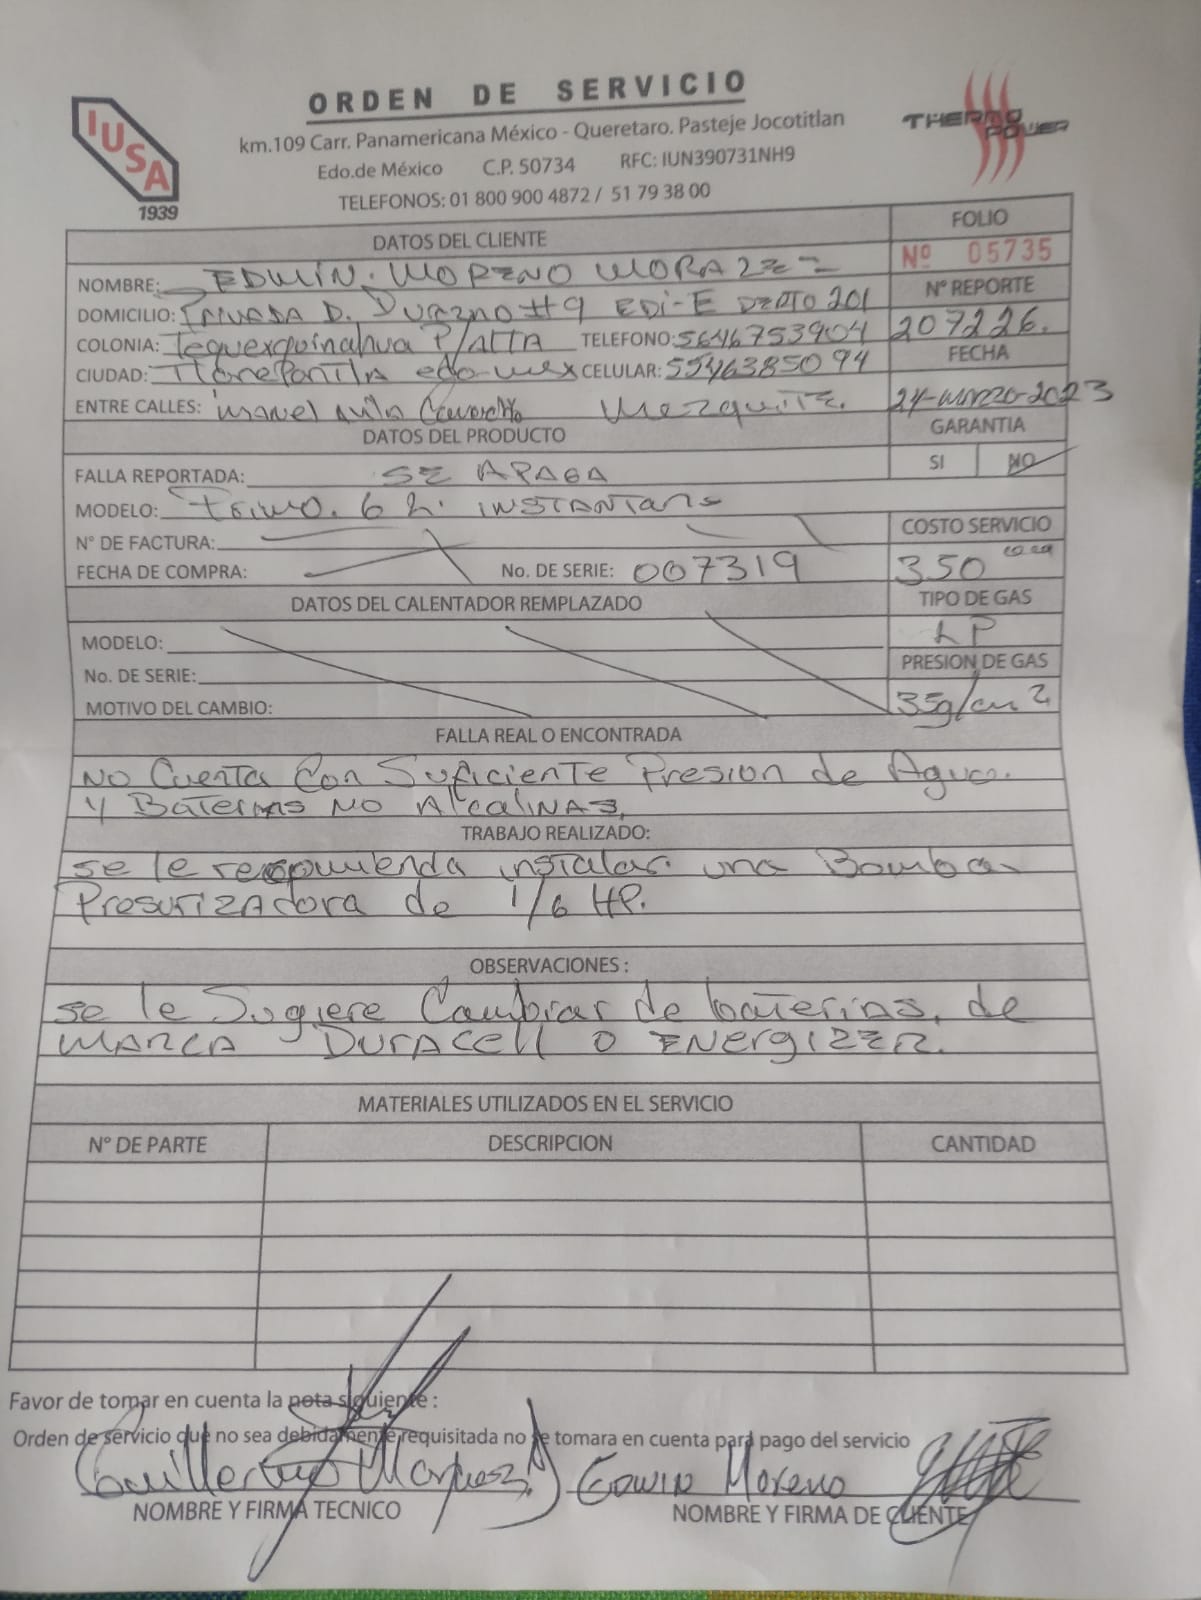 IUSA
1939
ORDEN DE SERVICIO
THERMO POWER
km.109 Carr. Panamericana México - Queretaro. Pasteje Jocotitlan
Edo.de México C.P. 50734 RFC: IUN390731NH9
TELEFONOS: 01 800 900 4872 / 51 79 38 00
DATOS DEL CLIENTE
FOLIO
Nº 05735
NOMBRE: EDWIN. MORENO
DOMICILIO: D. Durazno #9 EDI-E DEPTO 201
Nº REPORTE
207226.
COLONIA: P/ALTA TELEFONO: 5646753904
CIUDAD: edo-mex CELULAR: 5546385094
FECHA
24-marzo-2023
ENTRE CALLES: Mezquite.
DATOS DEL PRODUCTO
GARANTIA
SI NO
FALLA REPORTADA: SE APAGA
MODELO: 6 L. INSTANTANE
N° DE FACTURA:
COSTO SERVICIO
350
FECHA DE COMPRA: No. DE SERIE: 007319
DATOS DEL CALENTADOR REMPLAZADO
TIPO DE GAS
LP
MODELO:
No. DE SERIE:
PRESION DE GAS
35g/cm2
MOTIVO DEL CAMBIO:
FALLA REAL O ENCONTRADA
NO Cuenta Con Suficiente Presion de Agua.
Y Baterias NO AlcalINAS,
TRABAJO REALIZADO:
se le recomienda instalar una Bomba
PresurIZAdora de 1/6 HP.
OBSERVACIONES :
se le Sugiere Cambiar de baterias, de
MARCA DURACell O ENergIZER.
MATERIALES UTILIZADOS EN EL SERVICIO
N° DE PARTE DESCRIPCION CANTIDAD
Favor de tomar en cuenta la nota siguiente :
Orden de servicio que no sea debidamente requisitada no se tomara en cuenta para pago del servicio
Guillermo Marquez Edwin Moreno
NOMBRE Y FIRMA TECNICO NOMBRE Y FIRMA DE CLIENTE